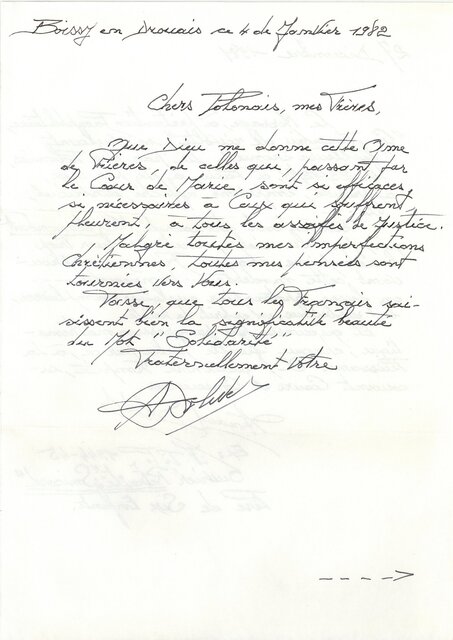 Boissy en Drouais ce 4 de Janvier 1982
Chers Polonais, mes Frères,
Que Dieu me donne cette Âme
de Prières, de celles qui, passant par
le Cœur de Marie, sont si efficaces,
si nécessaires à Ceux qui souffrent,
pleurent, à tous les assoiffés de Justice.
Malgré toutes mes imperfections
Chrétiennes, toutes mes pensées sont
tournées vers Vous.
Puisse, que tous les Français sai-
sissent bien la significative beauté
du Mot "Solidarité"
Fraternellement Vôtre